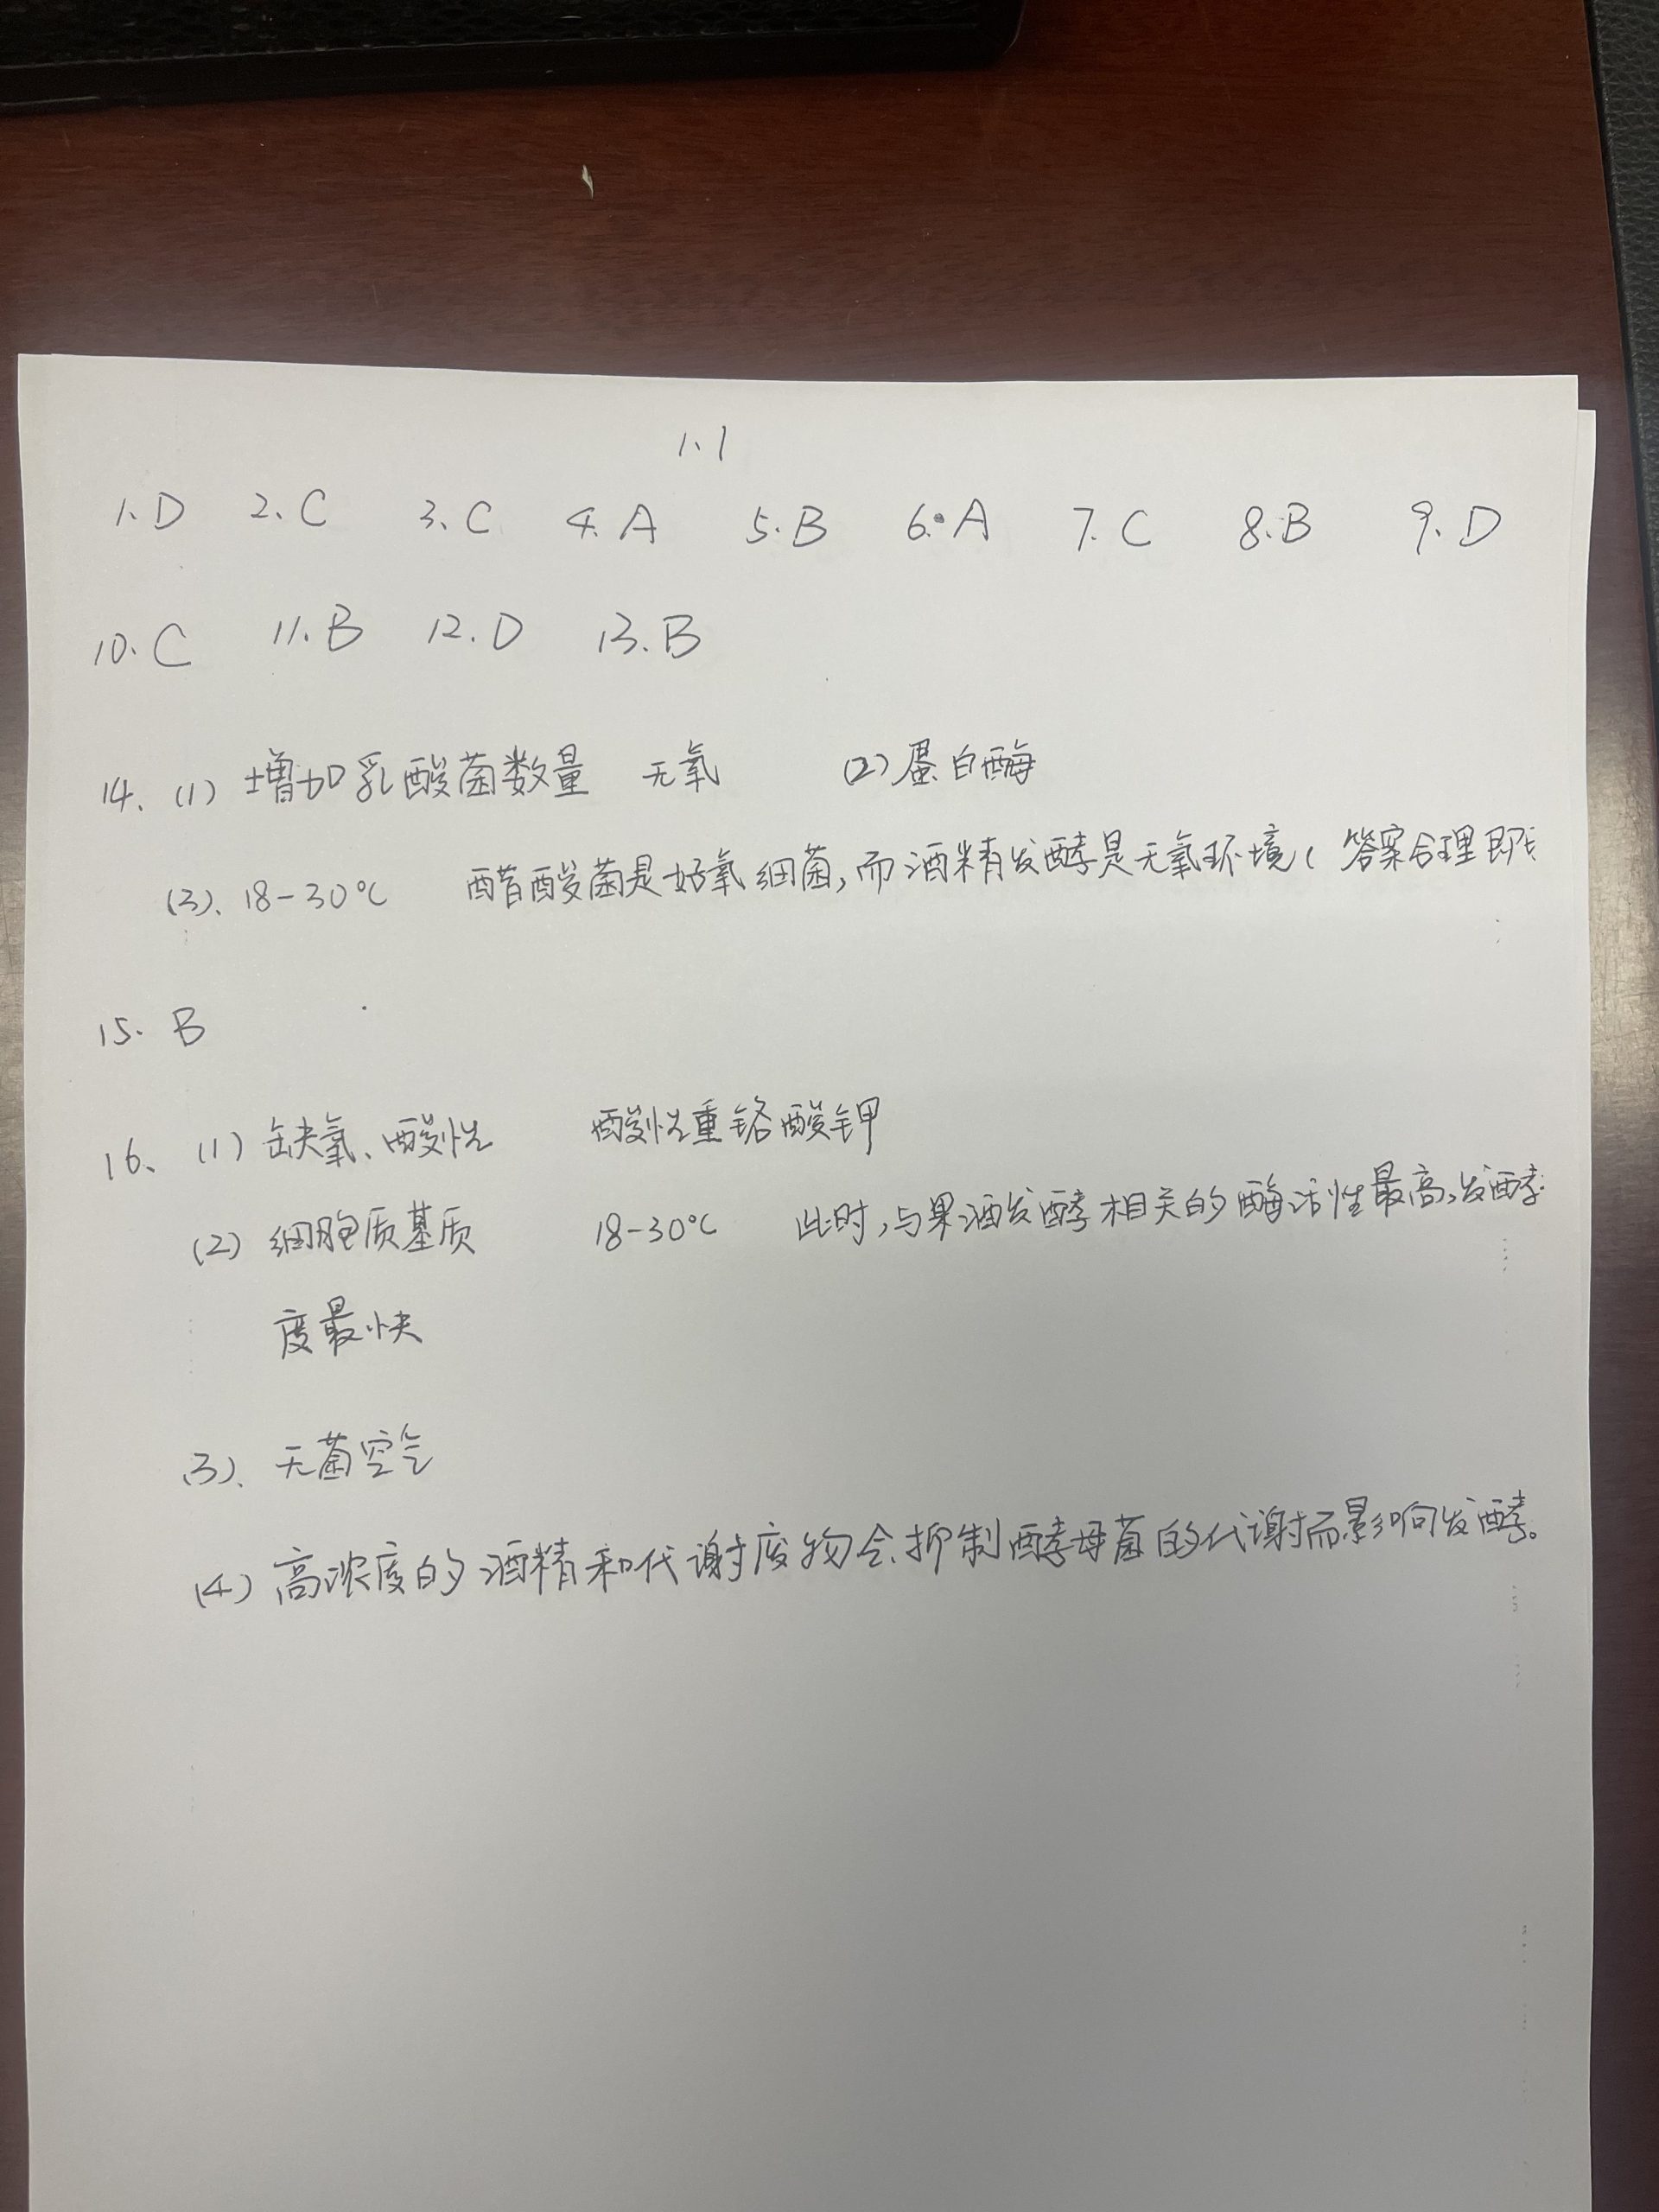 1.1
1. D 2. C 3. C 4. A 5. B 6. A 7. C 8. B 9. D
10. C 11. B 12. D 13. B
14. (1) 增加乳酸菌数量 无氧 (2) 蛋白酶
(3)、18-30℃ 醋酸菌是好氧细菌,而酒精发酵是无氧环境( 答案合理即
15. B
16、(1) 缺氧、酸性 酸性重铬酸钾
(2) 细胞质基质 18-30℃ 此时,与果酒发酵相关的酶活性最高,发酵
度最快
(3)、无菌空气
(4) 高浓度的酒精和代谢废物会抑制酵母菌的代谢而影响发酵。